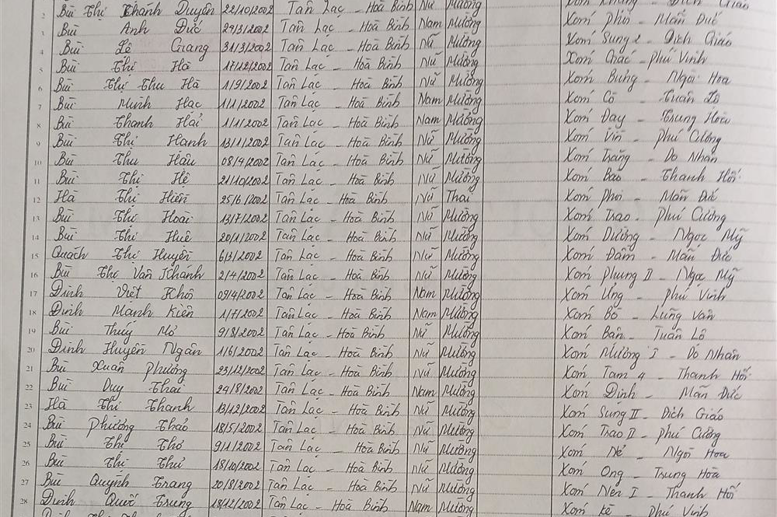 2 Bùi Thị Khánh Duyên 22/10/2002 Tân Lạc - Hoà Bình Nữ Mường
3 Bùi Anh Đức 29/3/2002 Tân Lạc - Hoà Bình Nam Mường Xóm Phói - Mãn Đức
4 Bùi Lê Giang 31/3/2002 Tân Lạc - Hoà Bình Nữ Mường Xóm Sung 2 - Địch Giáo
5 Bùi Thị Hà 17/12/2002 Tân Lạc - Hoà Bình Nữ Mường Xóm - Phú Vinh
6 Bùi Thị Thu Hà 1/9/2002 Tân Lạc - Hoà Bình Nữ Mường Xóm Bưng - Ngòi Hoa
7 Bùi Minh Hạc 1/1/2002 Tân Lạc - Hoà Bình Nam Mường Xóm Cỏ - Tuân Lộ
8 Bùi Thanh Hải 1/1/2002 Tân Lạc - Hoà Bình Nam Mường Xóm Đay - Trung Hoà
9 Bùi Thị Hạnh 13/1/2002 Tân Lạc - Hoà Bình Nữ Mường Xóm Vin - Phú Cường
10 Bùi Thu Hậu 08/4/2002 Tân Lạc - Hoà Bình Nữ Mường Xóm Trẳng - Do Nhân
11 Bùi Thị Hệ 21/10/2002 Tân Lạc - Hoà Bình Nữ Mường Xóm Bào - Thanh Hối
12 Hà Thị Hiền 25/6/2002 Tân Lạc - Hoà Bình Nữ Thái Xóm Phói - Mãn Đức
13 Bùi Thị Hoài 13/7/2002 Tân Lạc - Hoà Bình Nữ Mường Xóm Trao - Phú Cường
14 Bùi Thị Huê 20/1/2002 Tân Lạc - Hoà Bình Nữ Mường Xóm Dường - Ngọc Mỹ
15 Quách Thị Huyền 6/3/2002 Tân Lạc - Hoà Bình Nữ Mường Xóm Đầm - Mãn Đức
16 Bùi Thị Vân Khánh 2/4/2002 Tân Lạc - Hoà Bình Nữ Mường Xóm Phung II - Ngọc Mỹ
17 Đinh Viết Khôi 09/4/2002 Tân Lạc - Hoà Bình Nam Mường Xóm Ưng - Phú Vinh
18 Đinh Mạnh Kiên 1/7/2002 Tân Lạc - Hoà Bình Nam Mường Xóm Bổ - Lũng Vân
19 Bùi Thúy Mơ 9/8/2002 Tân Lạc - Hoà Bình Nữ Mường Xóm Bán - Tuân Lộ
20 Đinh Huyền Ngân 1/6/2002 Tân Lạc - Hoà Bình Nữ Mường Xóm Mương I - Do Nhân
21 Bùi Xuân Phương 23/12/2002 Tân Lạc - Hoà Bình Nữ Mường Xóm Tam 4 - Thanh Hối
22 Bùi Duy Thái 29/8/2002 Tân Lạc - Hoà Bình Nam Mường Xóm Định - Mãn Đức
23 Hà Thị Thanh 13/12/2002 Tân Lạc - Hoà Bình Nữ Mường Xóm Sung II - Địch Giáo
24 Bùi Phương Thảo 18/5/2002 Tân Lạc - Hoà Bình Nữ Mường Xóm Trao II - Phú Cường
25 Bùi Thị Thơ 9/1/2002 Tân Lạc - Hoà Bình Nữ Mường Xóm Nẻ - Ngòi Hoa
26 Bùi Thị Thư 18/10/2002 Tân Lạc - Hoà Bình Nữ Mường Xóm Ong - Trung Hoà
27 Bùi Quỳnh Trang 20/8/2002 Tân Lạc - Hoà Bình Nữ Mường Xóm Nen I - Thanh Hối
28 Đinh Quốc Trung 18/12/2002 Tân Lạc - Hoà Bình Nam Mường Xóm Kè - Phú Vinh